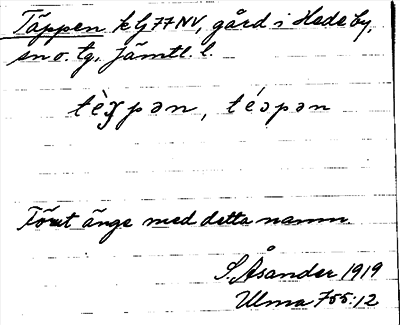 Täppen kG77NV, gård i Hedeby,
sn o. tg. Jämtl. l.
tèəpən, téəpən
Förut änge med detta namn.
S. Åsander 1919
Ulma 755:12